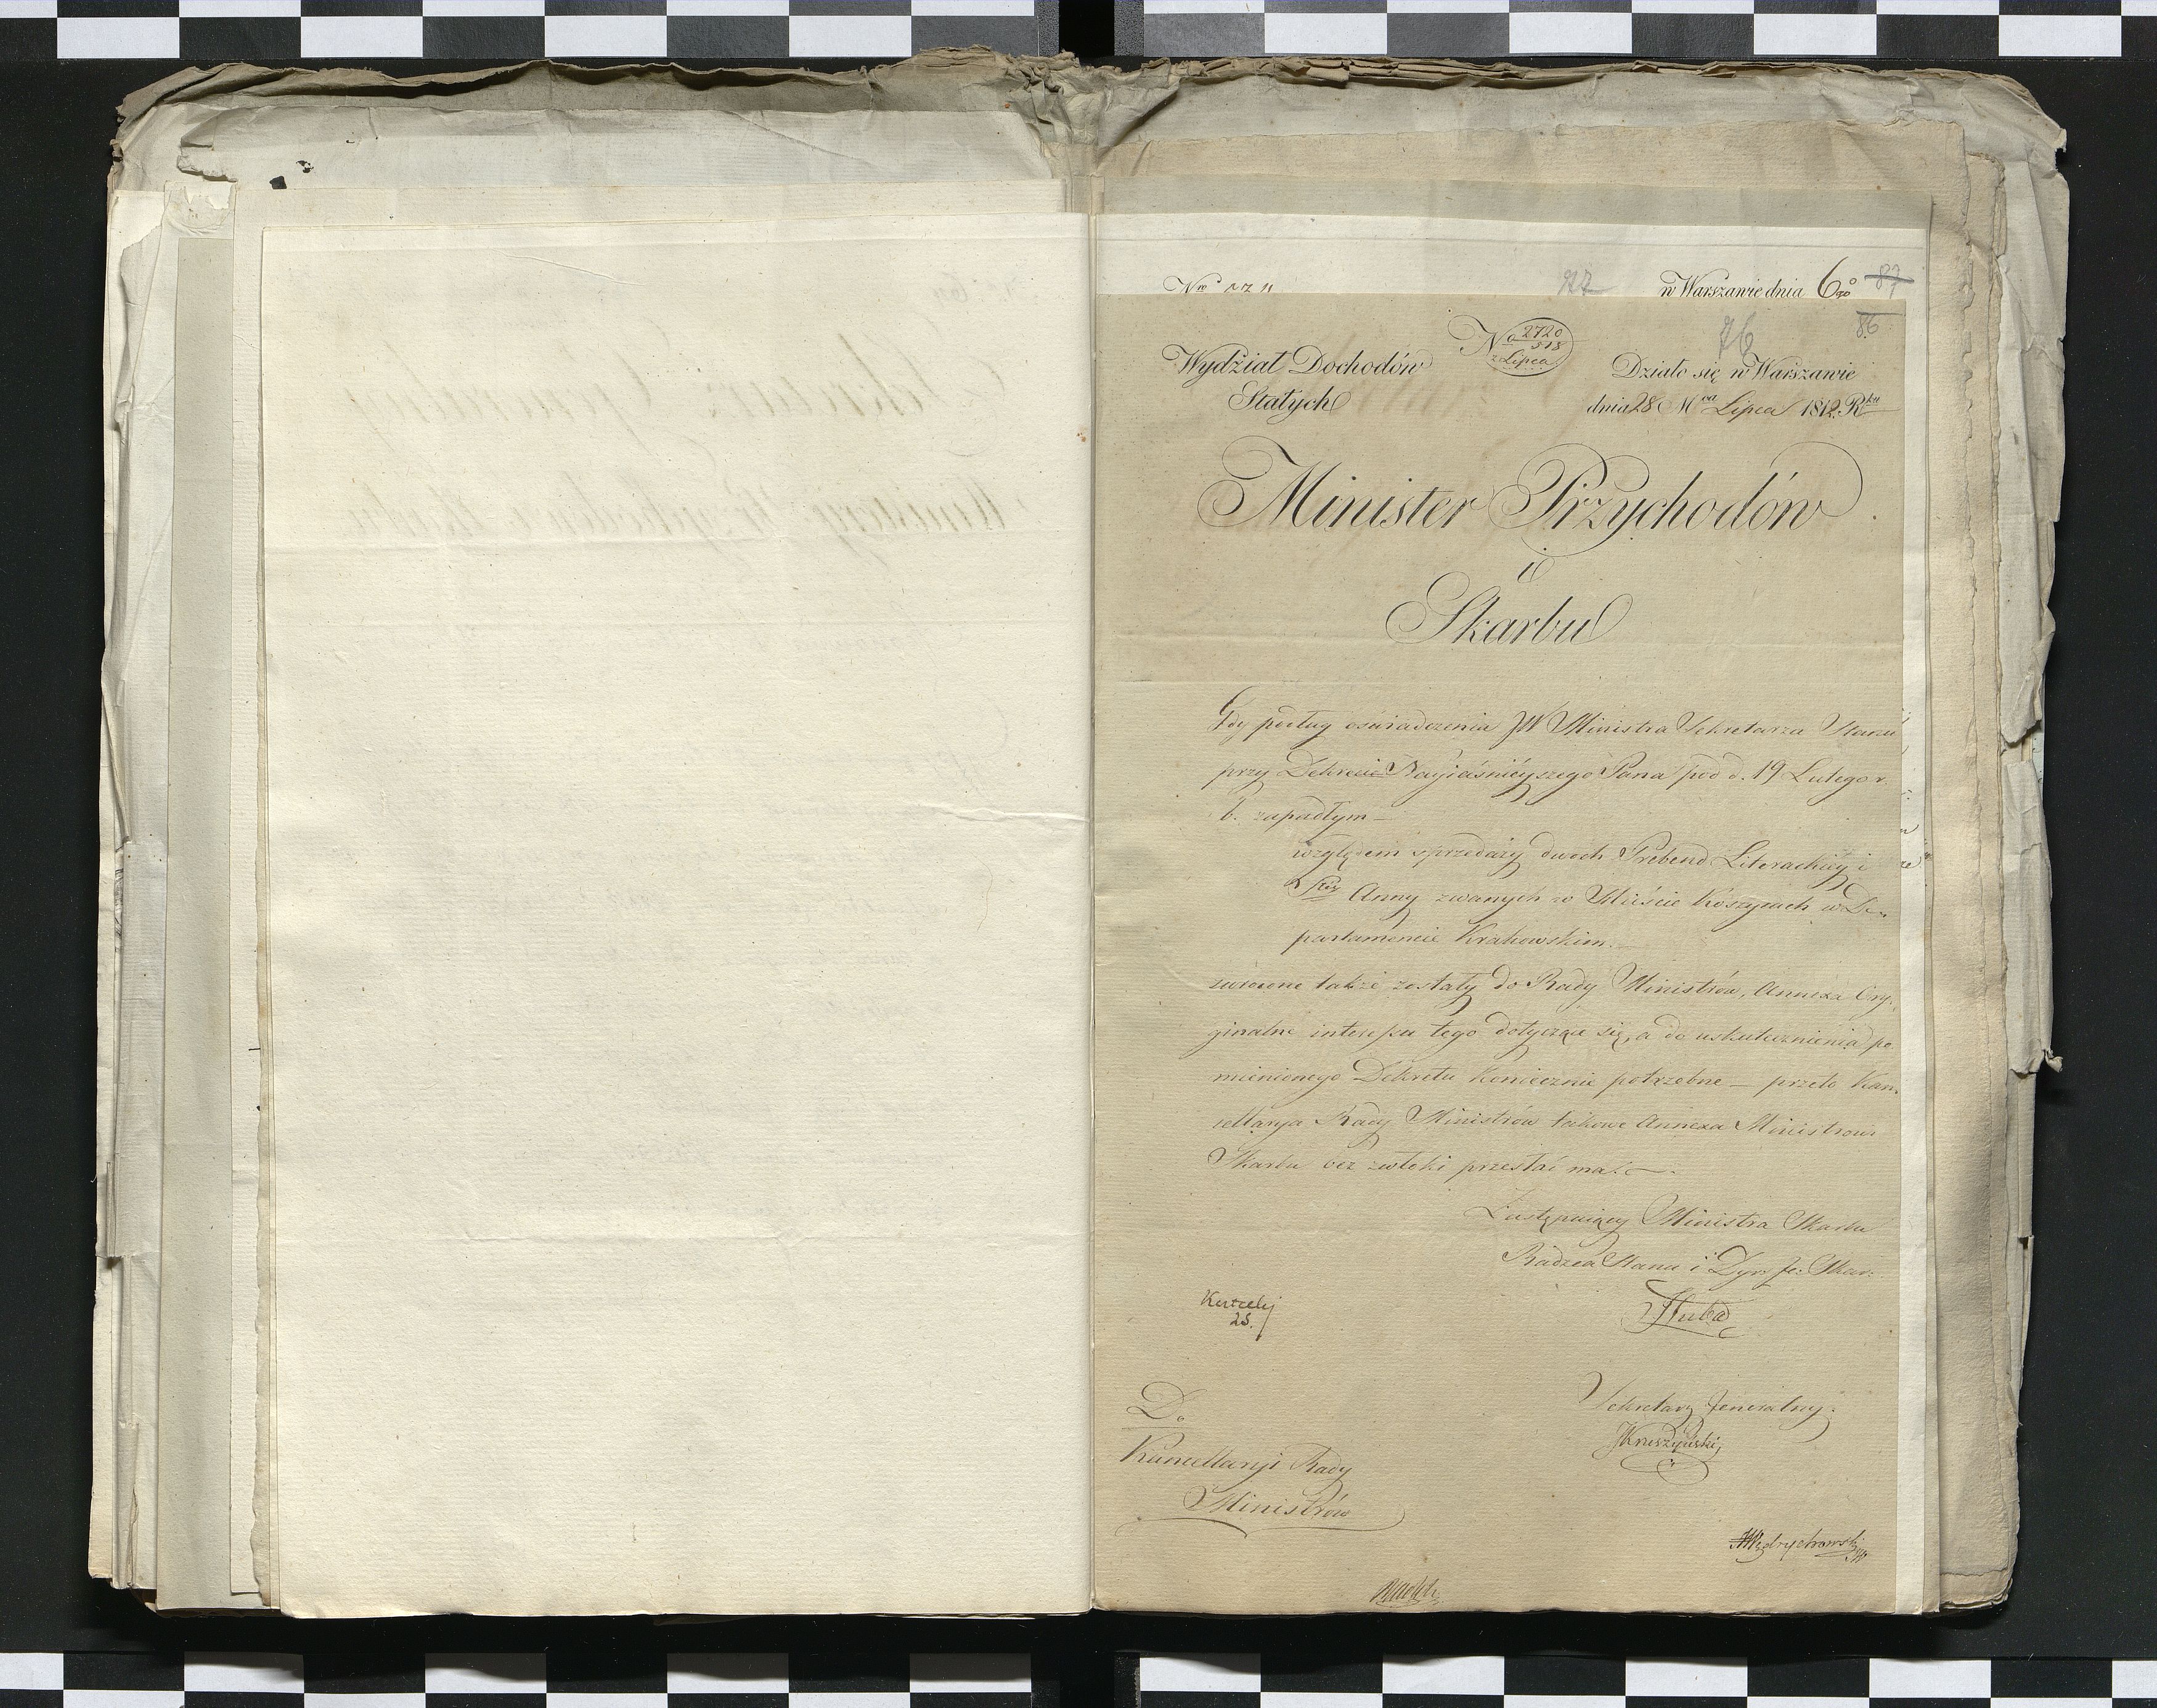 w Warszawie dnia 6go 87
77
76
86
Wydział Dochodów
Stałych
No 2720
518
z Lipca
Działo się w Warszawie
dnia 28 Mca Lipca 1812 Rku
Minister Przychodów
i
Skarbu
Gdy podług oświadczenia JW Ministra Sekretarza Stanu
przy Dekrecie Nayiaśnieyszego Pana pod d. 19 Lutego r.
b. zapadłym –
względem sprzedaży dwóch Prebend Literackiey i
Stey Anny zwanych w Mieście Koszycach w De-
partamencie Krakowskim. –
zwrócone także zostały do Rady Ministrów, Annexa Ory-
ginalne interessu tego dotyczące się, a do uskutecznienia po
mienionego Dekretu koniecznie potrzebne – przeto Kan-
cellarya Rady Ministrów takowe Annexa Ministrowi
Skarbu bez zwłoki przesłać ma. –
Zastępuiący Ministra Skarbu
Radzca Stanu i Dyr: Je: Skar:
28.
Sekretarz Jeneralny:
JKruszyński
Do
Kancellaryi Rady
Ministrów